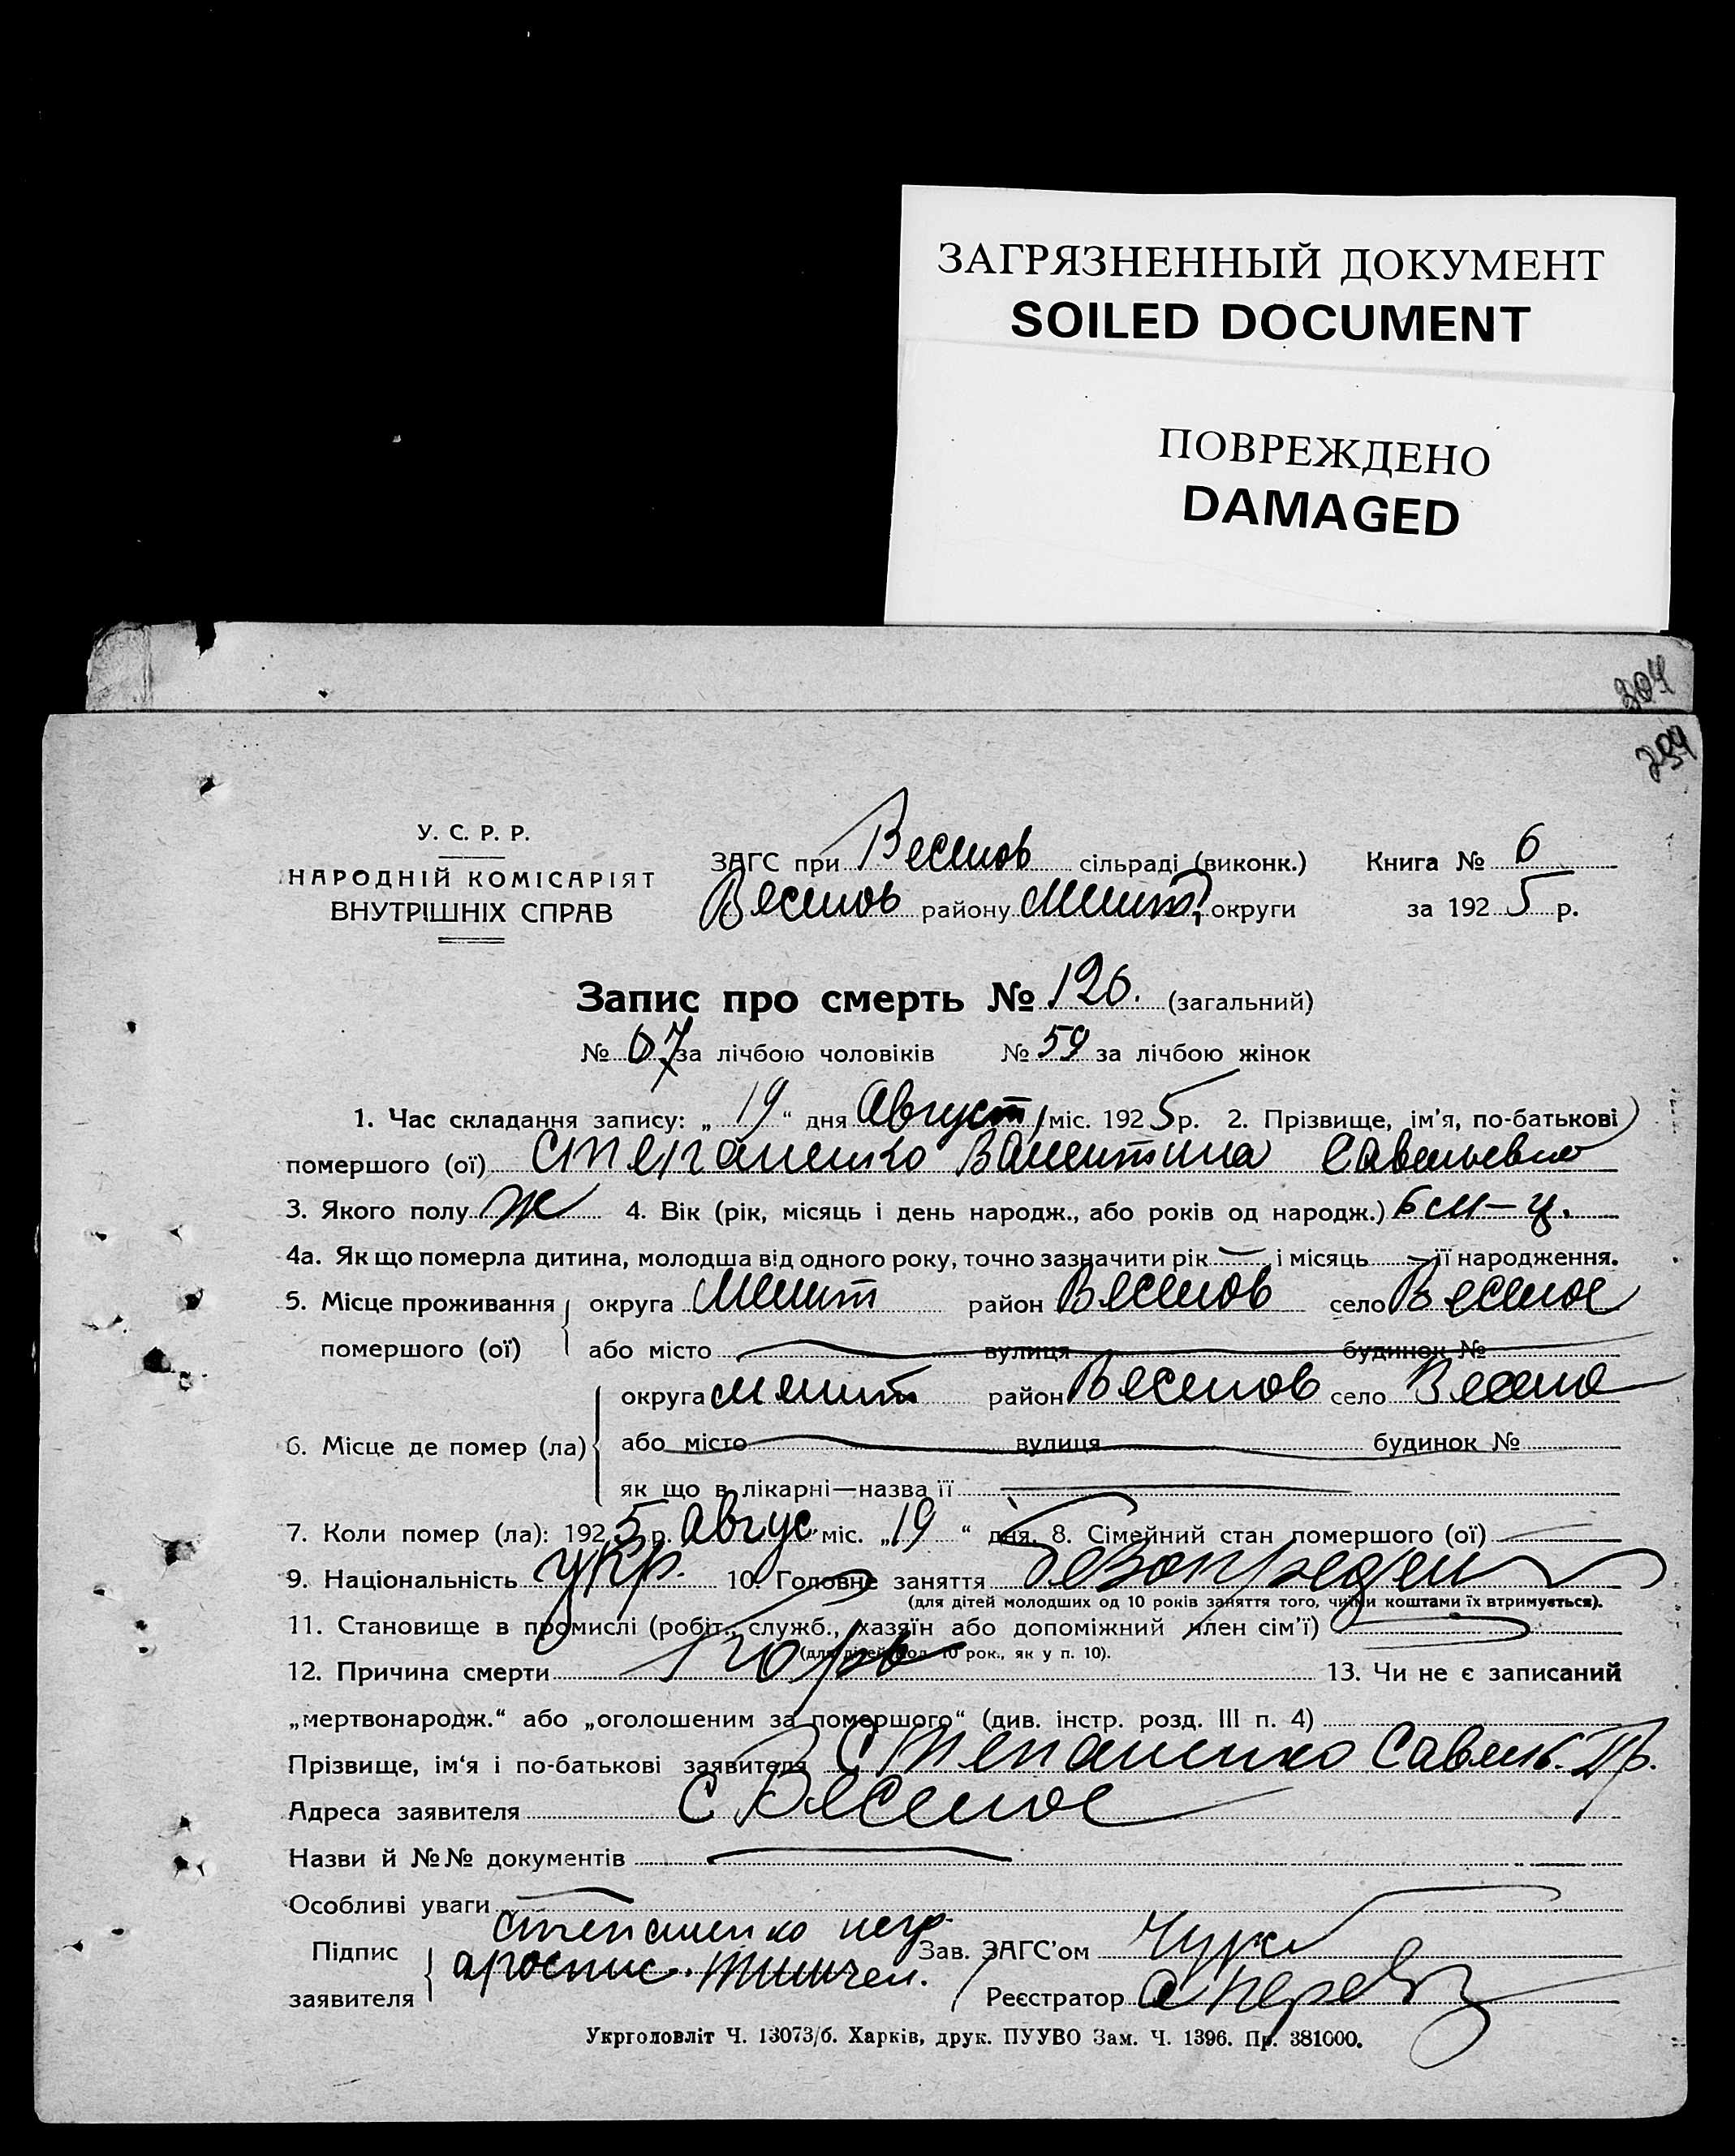 ЗАГРЯЗНЕННЫЙ ДОКУМЕНТ
SOILED DOCUMENT
ПОВРЕЖДЕНО
DAMAGED
304
У. С. Р. Р.
НАРОДНІЙ КОМІСАРІЯТ
ВНУТРІШНІХ СПРАВ
ЗАГС при Веселов сільраді (виконк.) Книга № 6
Веселов району Мелит. округи за 1925 р.
Запис про смерть № 126. (загальний)
№ 67 за лічбою чоловіків № 59 за лічбою жінок
1. Час складання запису: „19“ дня Август міс. 1925 р. 2. Прізвище, ім'я, по-батькові
помершого (ої) Степаненко Валентина Савельевна
3. Якого полу Ж 4. Вік (рік, місяць і день народж., або років од народж.) 6 м-ц.
4а. Як що померла дитина, молодша від одного року, точно зазначити рік — і місяць — її народження.
5. Місце проживання помершого (ої) округа Мелит район Веселов село Веселое
або місто вулиця будинок №
6. Місце де помер (ла) округа Мелит район Веселов село Веселое
або місто вулиця будинок №
як що в лікарні—назва її
7. Коли помер (ла): 1925 р. Авгус міс. „19“ дня. 8. Сімейний стан помершого (ої)
9. Національність Укр. 10. Головне заняття
(для дітей молодших од 10 років заняття того, чиїми коштами їх втримується).
11. Становище в промислі (робіт., служб., хазяїн або допоміжний член сім'ї)
(для дітей мол. 10 рок., як у п. 10).
12. Причина смерти Корь 13. Чи не є записаний
„мертвонародж.“ або „оголошеним за помершого“ (див. інстр. розд. III п. 4)
Прізвище, ім'я і по-батькові заявителя Степаненко Савель. Пр.
Адреса заявителя с Веселое
Назви й №№ документів
Особливі уваги
Підпис заявителя Степаненко негр.
Зав. ЗАГС'ом
Реєстратор
Укрголовліт Ч. 13073/б. Харків, друк. ПУУВО Зам. Ч. 1396. Пр. 381000.